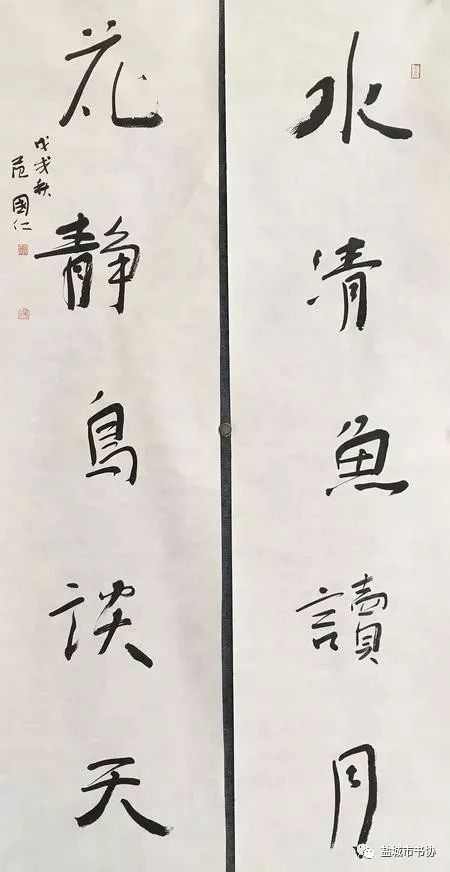 水清魚讀月
花静鳥談天
戊戌秋
范國仁
盐城市书协